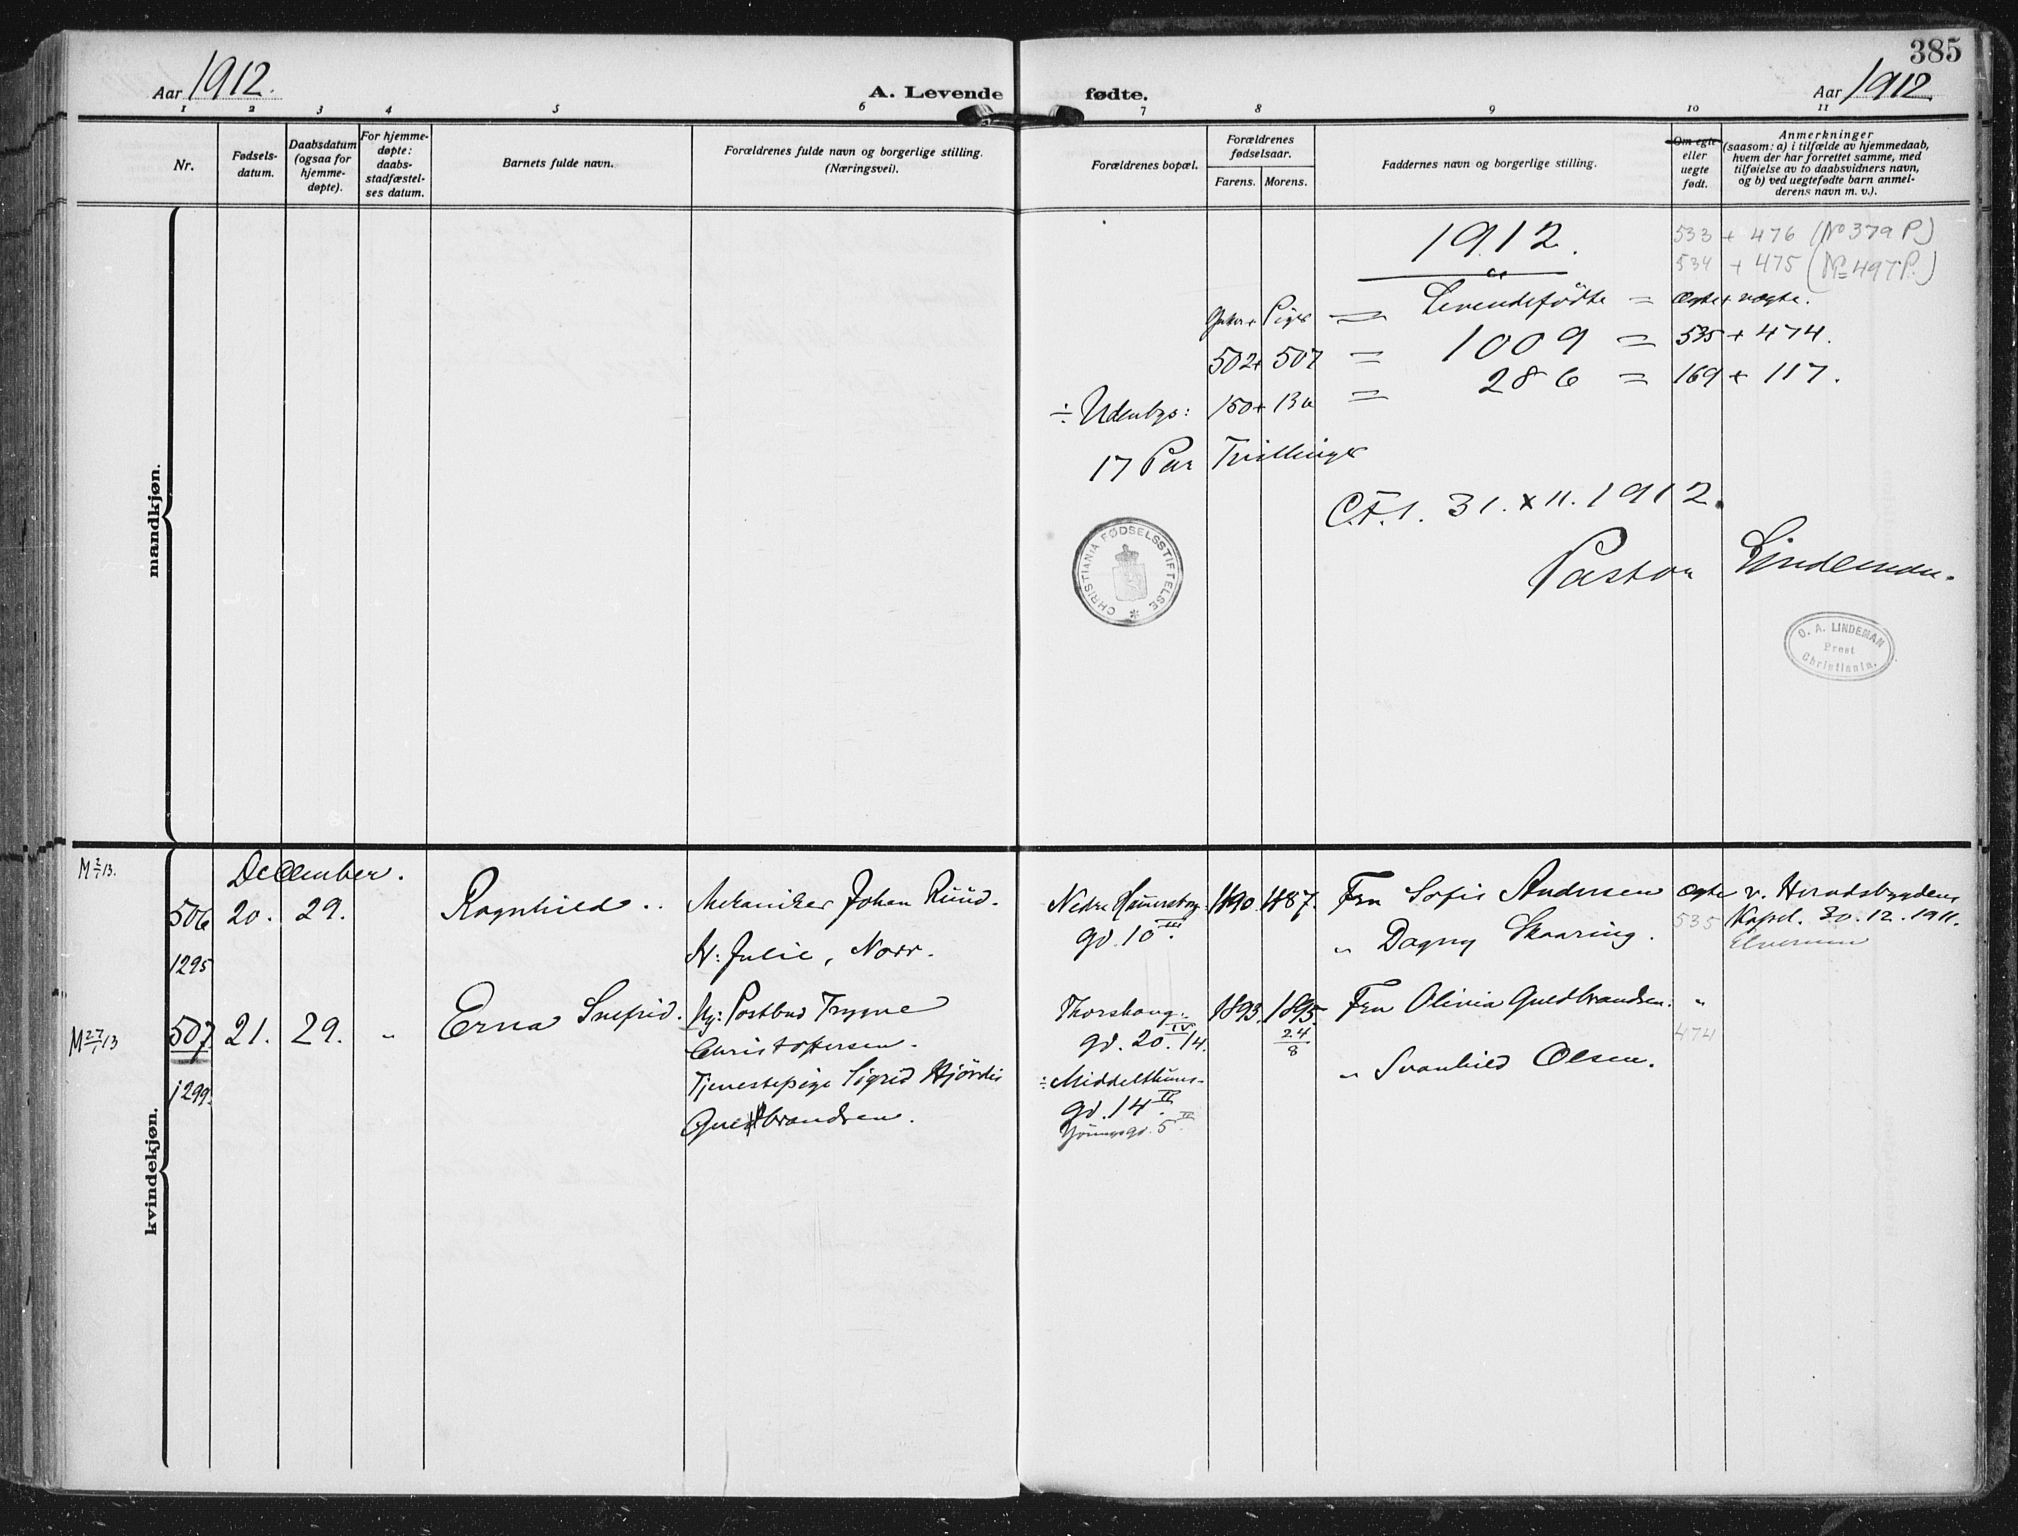 385
Aar 1912.
A. Levende fødte.
Aar 1912
1 2 3 4 5 6 7 8 9 10 11
Nr.
Fødsels-
datum.
Daabsdatum
(ogsaa for
hjemme-
døpte).
For hjemme-
døpte:
daabs-
stadfæstel-
ses datum.
Barnets fulde navn.
Forældrenes fulde navn og borgerlige stilling.
(Næringsvei).
Forældrenes bopæl.
Forældrenes
fødselsaar.
Farens. Morens.
Faddernes navn og borgerlige stilling.
Om egte
eller
uegte
født.
Anmerkninger
(saasom: a) i tilfælde av hjemmedaab,
hvem der har forrettet samme, med
tilføielse av to daabsvidners navn,
og b) ved uegtefødte barn anmel-
derens navn m. v.).
mandkjøn.
1912.
533 + 476 (No 379 P.)
534 + 475 (No 497 P.)
Piger = Levendefødte = Ægte + uægte.
502 + 507 = 1009 = 535 + 474.
÷ Udenbys: 150 + 136 = 286 = 169 + 117.
17 Par Tvillinger
C.F.S. 31. XII. 1912.
Pastor Lindeman.
CHRISTIANIA FØDSELSSTIFTELSE
O. A. LINDEMAN
Prest
Christiania.
kvindekjøn.
December.
M 2/1 13.
506 20. 29. Ragnhild. Mekaniker Johan Ruud. Nedre 1890. 1887. Fru Sofie Andersen Ægte v. Heradsbygdens
H: Julie, Norr. gd. 10 III. " Dagny Skaaring. 535 Kapel. 30.12.1911.
1295 Elverum
M 27/1 13
507 21. 29. " Erna Snefrid. Ug: Postbud Trygve Thorshaug- 1893. 1895. Fru Olivia Guldbrandsen. "
Christoffersen. gd. 20 IV. 14. 24/8 474
1299. Tjenestepige Sigrid Hjørdis ÷ Middelthuns- " Svanhild Olsen.
Guldbrandsen. gd. 14 II.
Youngsgd. 5 II.